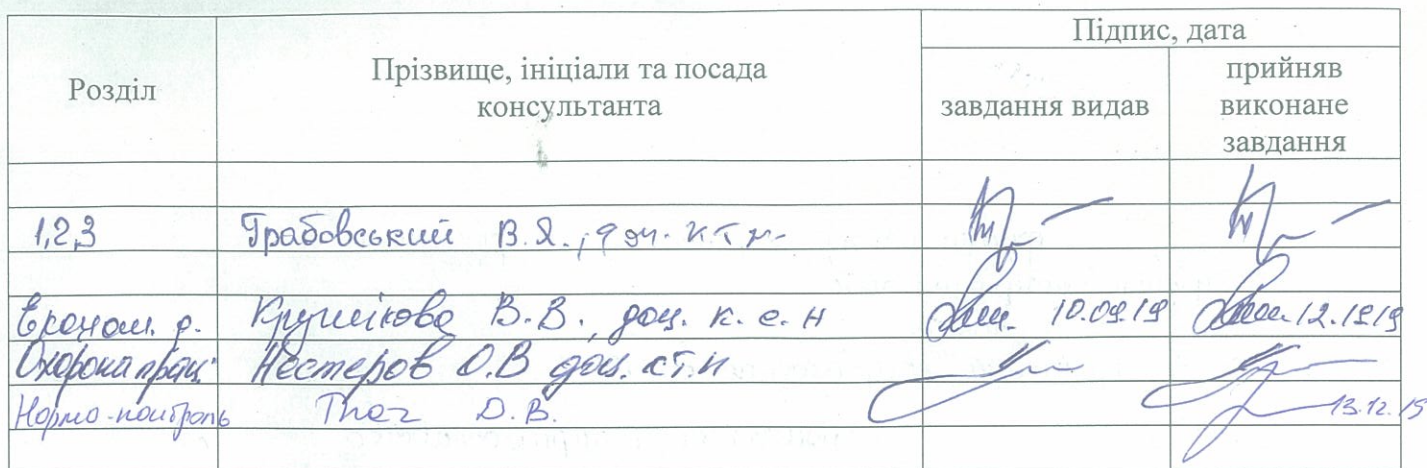 Розділ Прізвище, ініціали та посада консультанта Підпис, дата
завдання видав прийняв виконане завдання
1,2,3 Грабовський В.Я., доц. к.т.н.
Економ. р. В.В. доц. к.е.н 10.09.19 12.12.19
Охорона праці Нестеров О.В доц. к.т.н
Нормо-контроль Ткач Д.В. 13.12.19